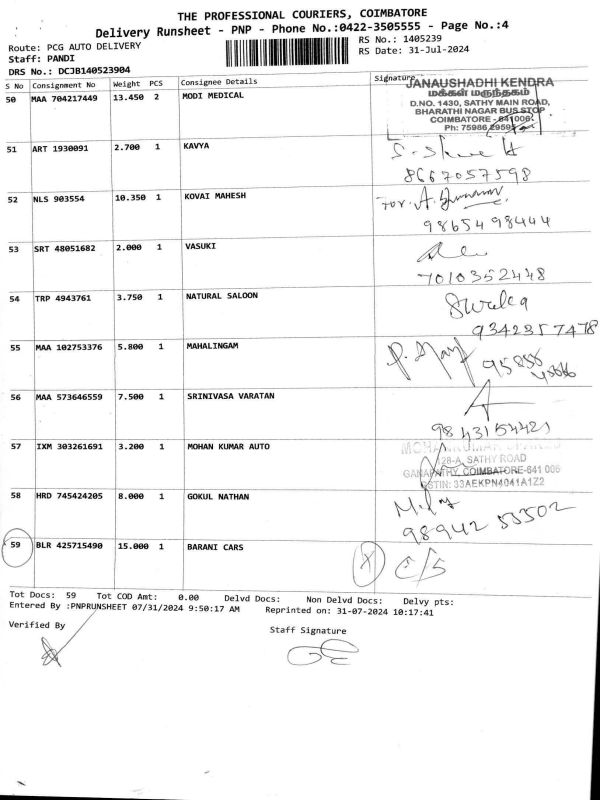 THE PROFESSIONAL COURIERS, COIMBATORE
Delivery Runsheet - PNP - Phone No.:0422-3505555 - Page No.:4
Route: PCG AUTO DELIVERY
RS No.: 1405239
Staff: PANDI
RS Date: 31-Jul-2024
DRS No.: DCJB140523904
S No Consignment No Weight PCS Consignee Details Signature
50 MAA 704217449 13.450 2 MODI MEDICAL
JANAUSHADHI KENDRA
மக்கள் மருந்தகம்
D.NO. 1430, SATHY MAIN ROAD,
BHARATHI NAGAR BUS STOP
COIMBATORE - 641006.
Ph: 75986
51 ART 1930091 2.700 1 KAVYA
8667057598
52 NLS 903554 10.350 1 KOVAI MAHESH
For. A.
9865498444
53 SRT 48051682 2.000 1 VASUKI
7010352448
54 TRP 4943761 3.750 1 NATURAL SALOON
9342357478
55 MAA 102753376 5.800 1 MAHALINGAM
56 MAA 573646559 7.500 1 SRINIVASA VARATAN
9843154421
57 IXM 303261691 3.200 1 MOHAN KUMAR AUTO
128-A, SATHY ROAD
GANAPATHY, COIMBATORE-641 006
GSTIN: 33AEKPN4041A1Z2
58 HRD 745424205 8.000 1 GOKUL NATHAN
98942 55502
59 BLR 425715490 15.000 1 BARANI CARS
X C/S
Tot Docs: 59 Tot COD Amt: 0.00 Delvd Docs: Non Delvd Docs: Delvy pts:
Entered By :PNPRUNSHEET 07/31/2024 9:50:17 AM Reprinted on: 31-07-2024 10:17:41
Verified By
Staff Signature